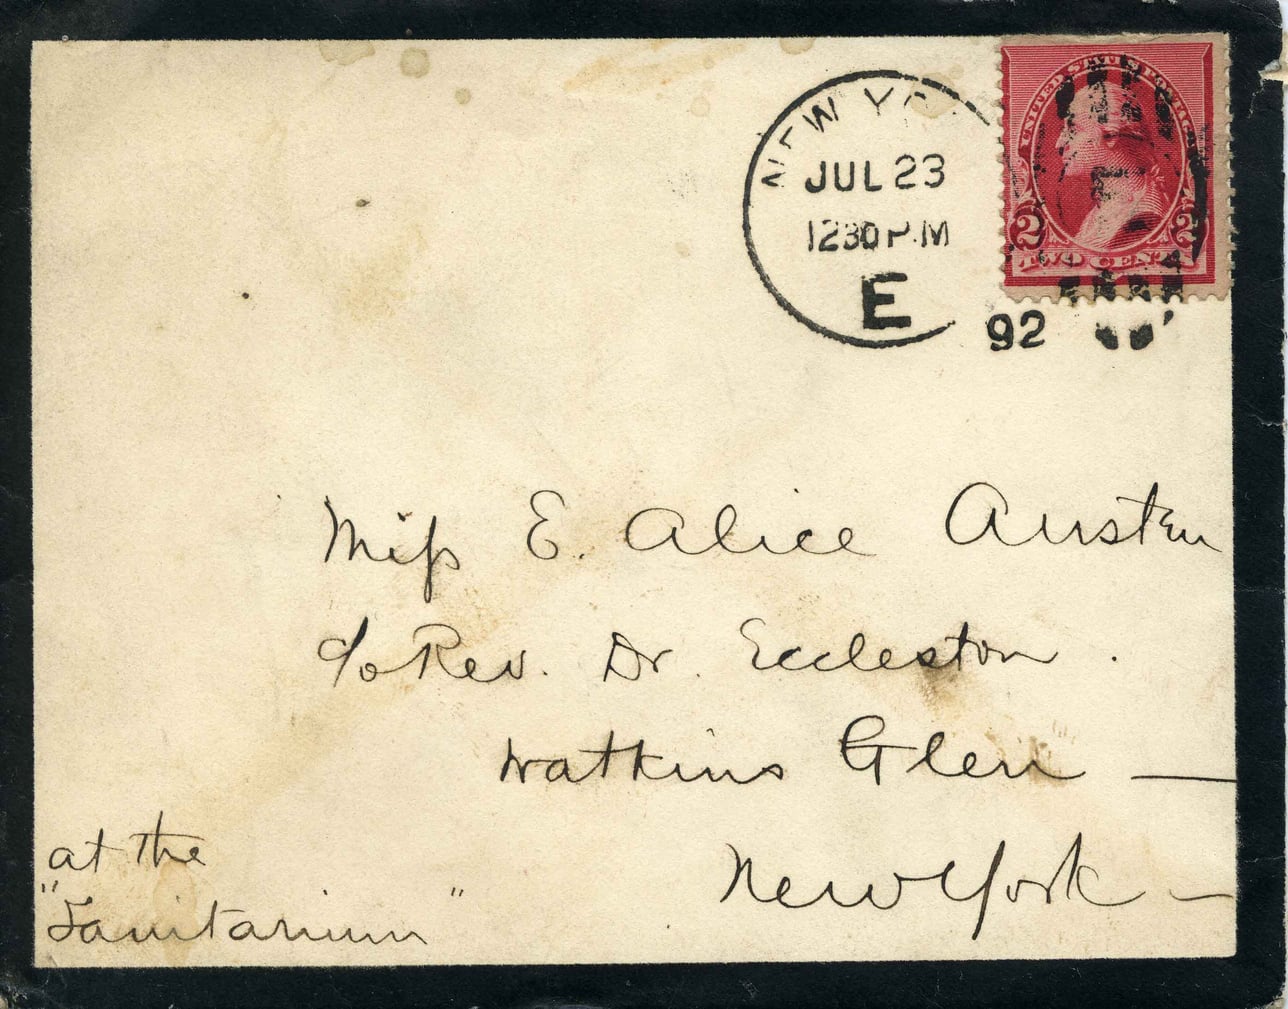 NEW YO
JUL 23
1230 P.M
E
92
UNITED STATES POSTAGE
2 2
TWO CENTS
Miss E. Alice Austen
c/o Rev. Dr. Eccleston.
Watkins Glen —
New York —
at the
"Sanitarium"